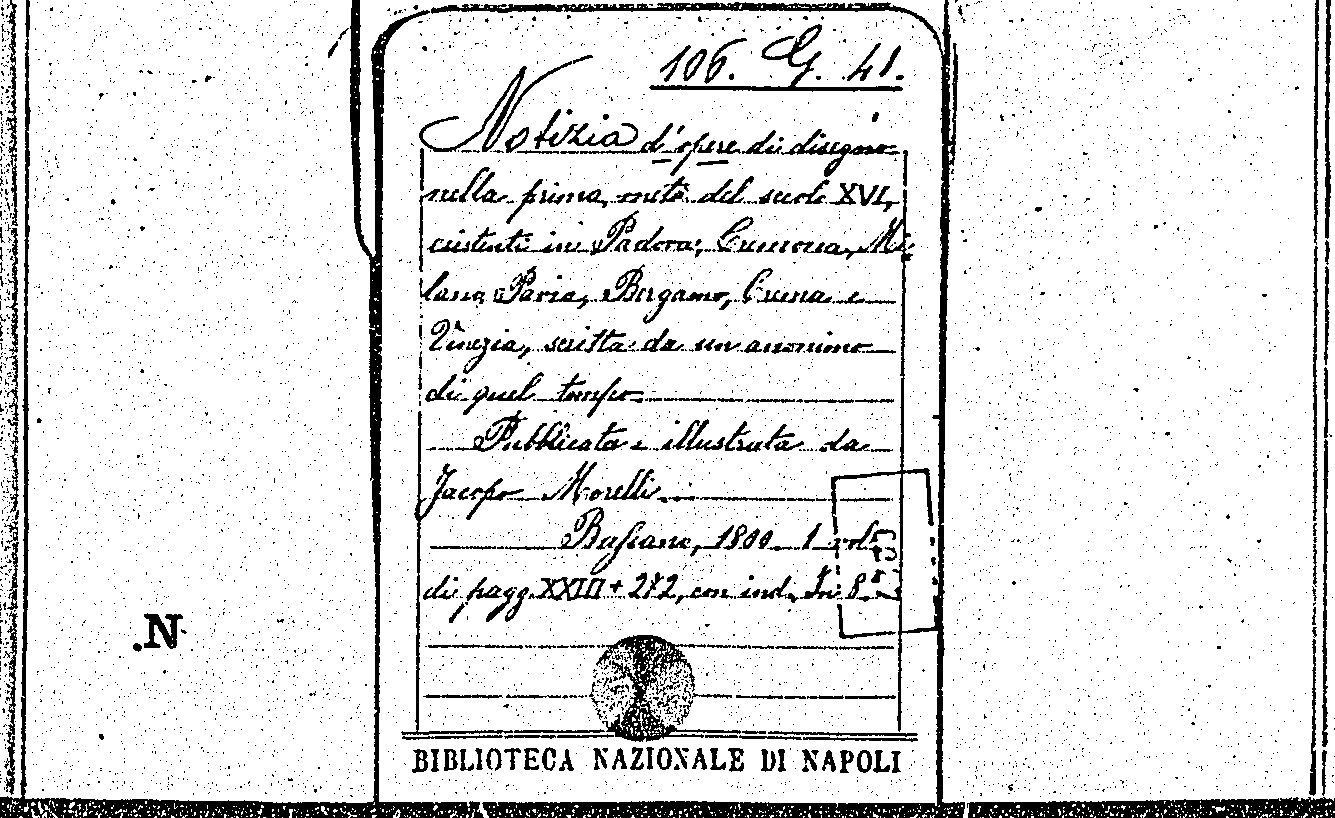 106. G. 41.
Notizia d'opere di disegno
nella prima metà del secolo XVI,
esistenti in Padova, Cremona, Mi-
lano, Pavia, Bergamo, Crema e
Venezia, scritta da un anonimo
di quel tempo
Pubblicata e illustrata da
Jacopo Morelli.
Bassano, 1800. 1 vol.
di pagg. XXIII + 272, con ind. In 8.°
.N
BIBLIOTECA NAZIONALE DI NAPOLI